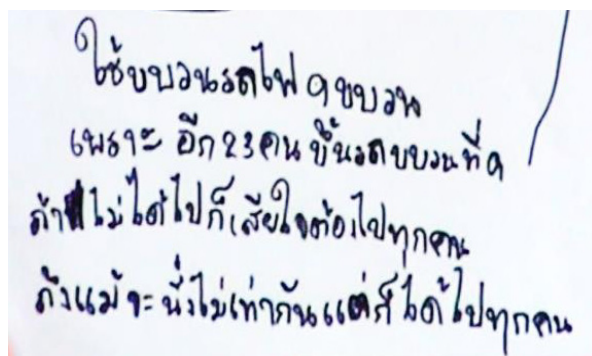 ใช้ขบวนรถไฟ 9 ขบวน
เพราะ อีก 23 คน ขึ้นรถขบวนที่ 9
ถ้าไม่ได้ไปก็เสียใจต้องไปทุกคน
ถึงแม้จะนั่งไม่เท่ากันแต่ก็ได้ไปทุกคน